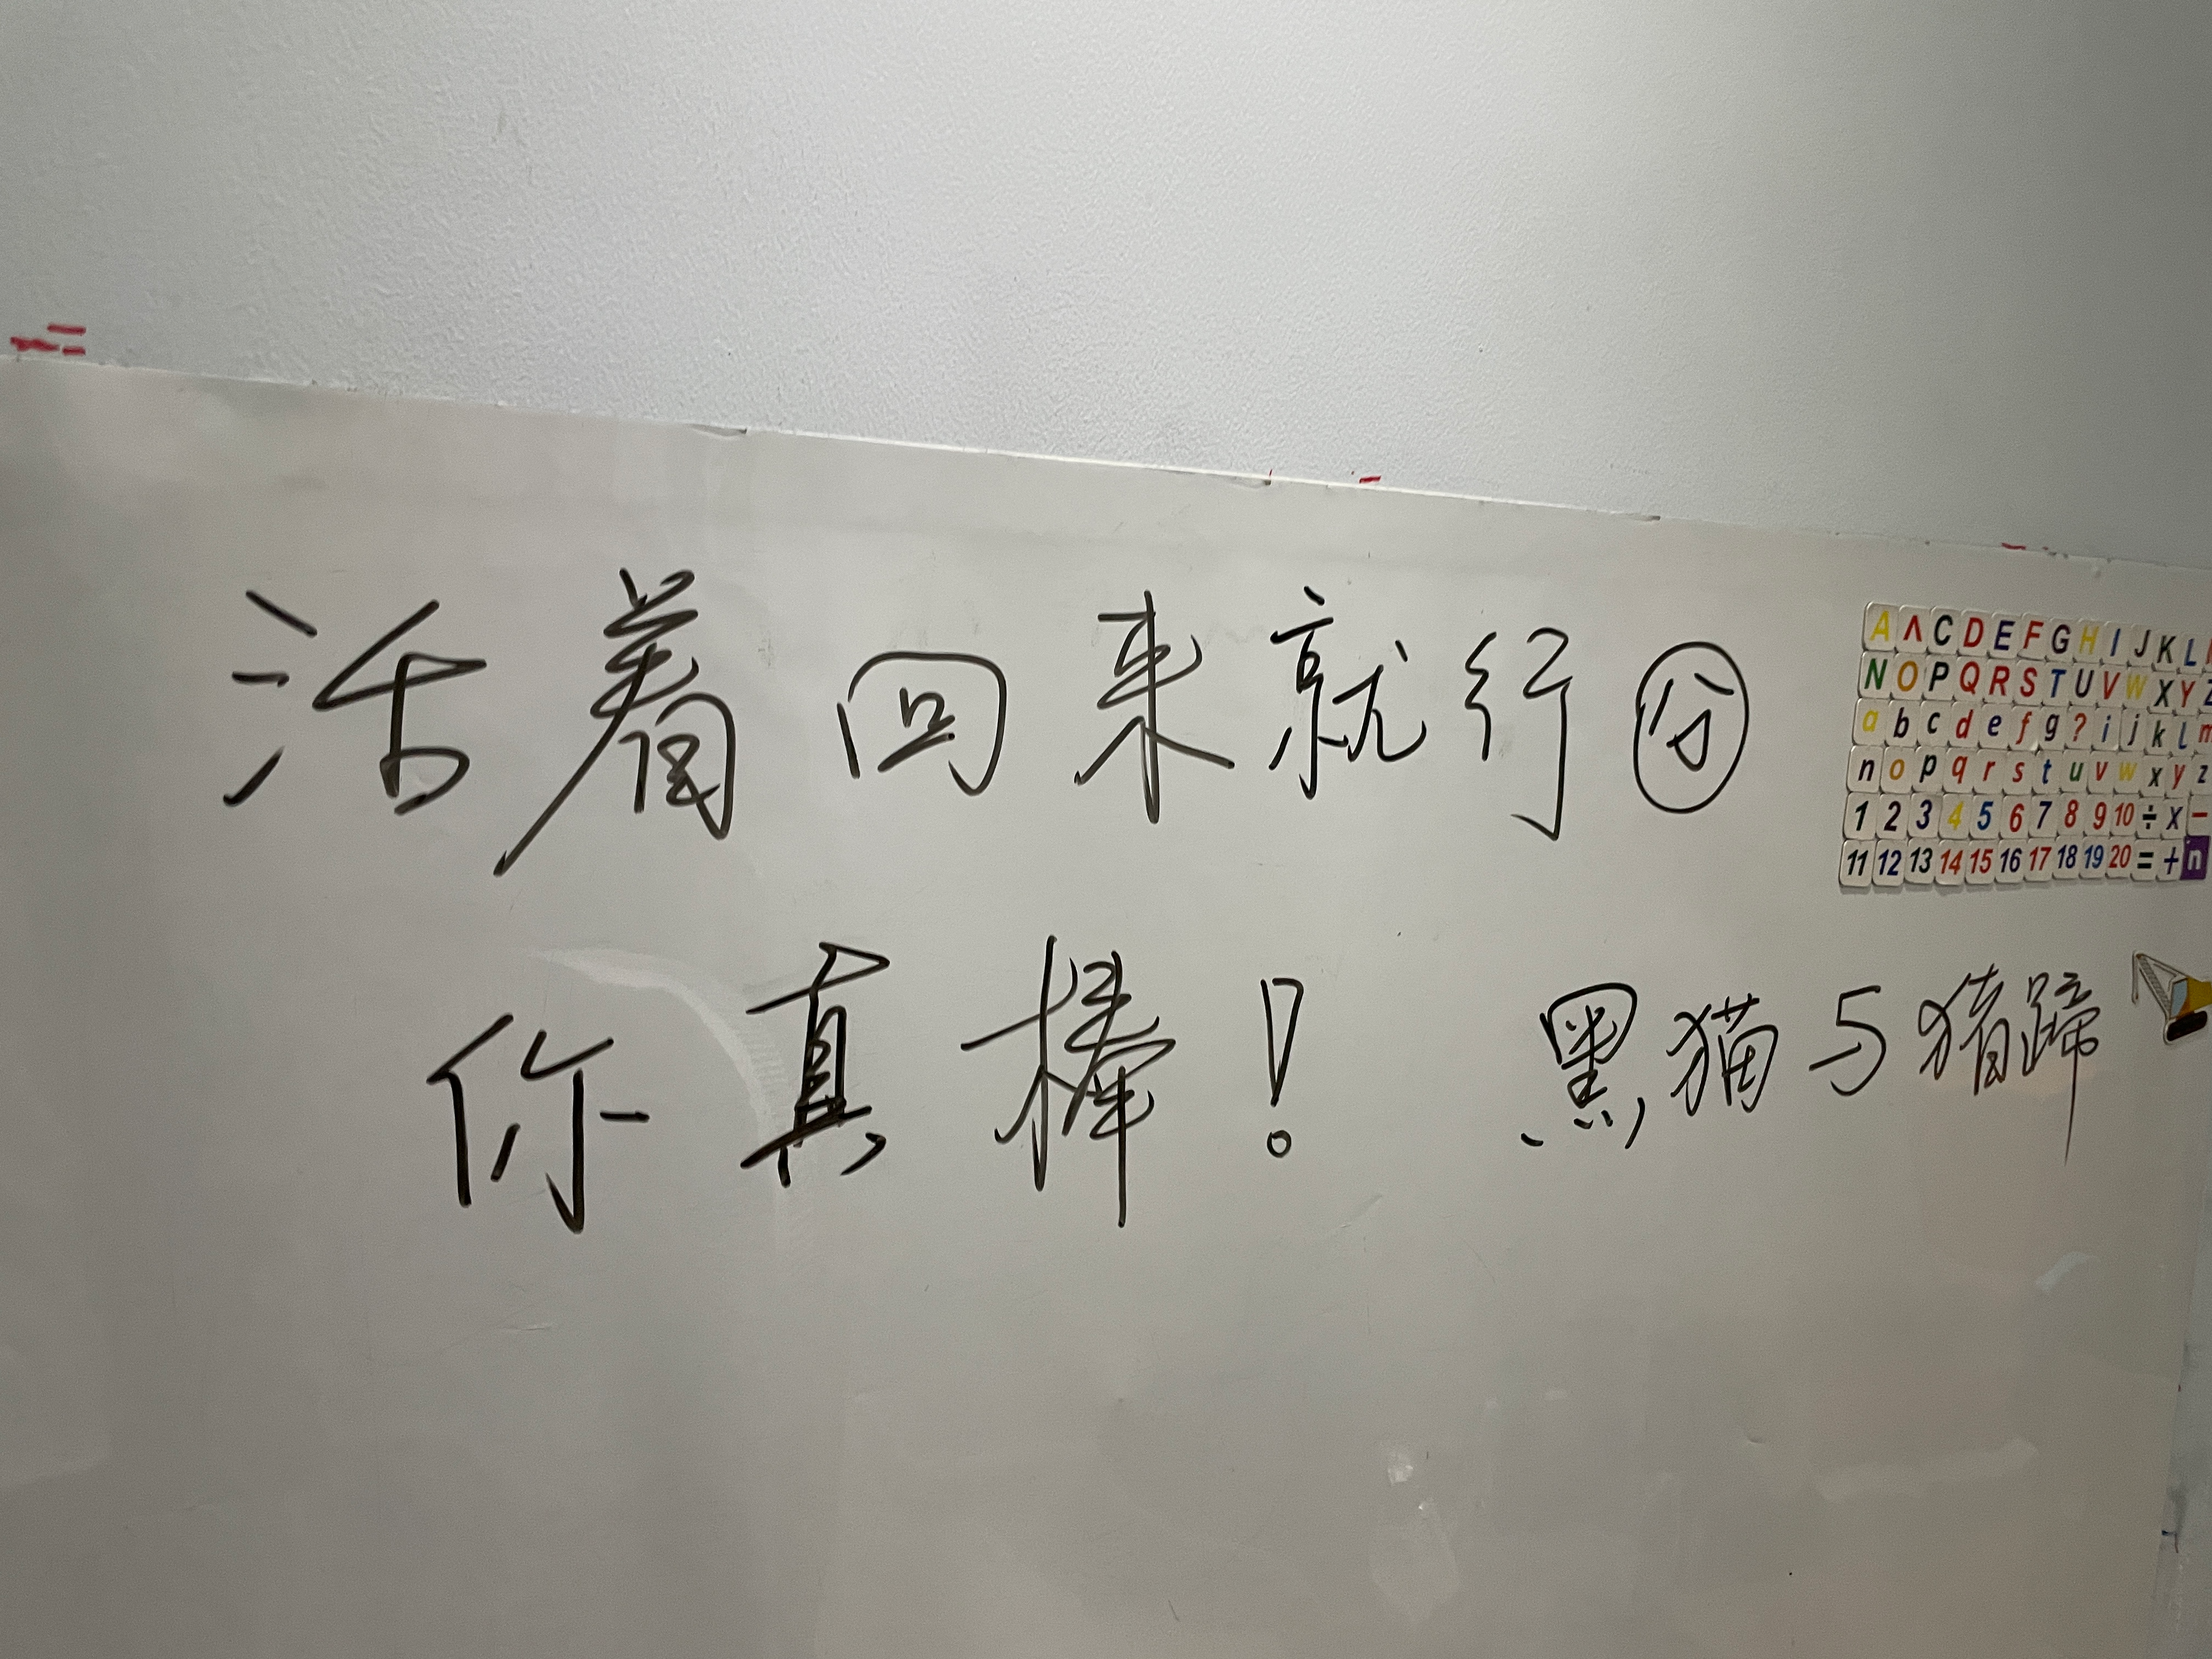 活着回来就行分
你真棒！ 黑猫与猪蹄
A Λ C D E F G H I J K L
N O P Q R S T U V W X Y Z
a b c d e f g ? i j k l m
n o p q r s t u v w x y z
1 2 3 4 5 6 7 8 9 10 ÷ x −
11 12 13 14 15 16 17 18 19 20 = + n